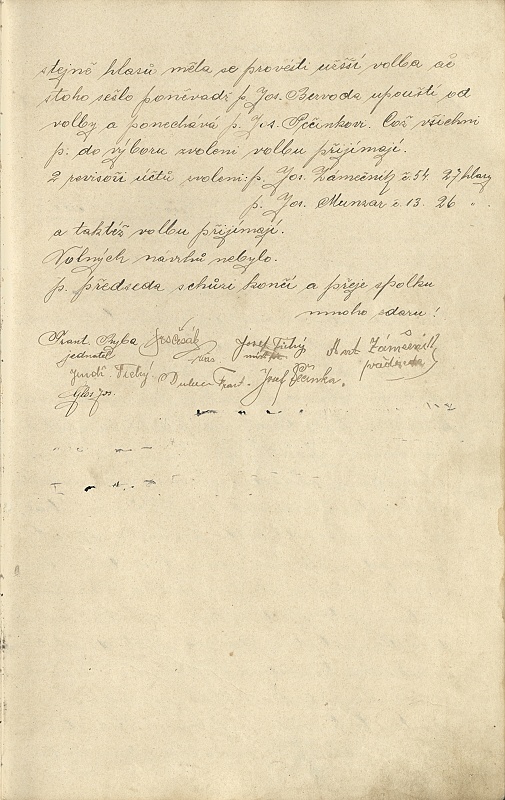 stejně hlasů měla se provésti užší volba ač
stoho sešlo poněvadž p. Jos. Bervoda upouští od
volby a ponechává p. Jos. Pečinkovi. Což všichni
p. do výboru zvoleni volbu přijímají.
2 revisoři účtů zvoleni: p. Jos. Zámečník č. 54. 27 hlasy
p. Jos. Munzar č. 13. 26 " .
a taktéž volbu přijímají.
Volných navrhů nebylo.
p. předseda schůzi končí a přeje spolku
mnoho zdaru!
Frant. Ryba Josef Tichý Ant.
jednatel předseda
Jindř. Tichý Frant. Josef Pečinka.
Jos.